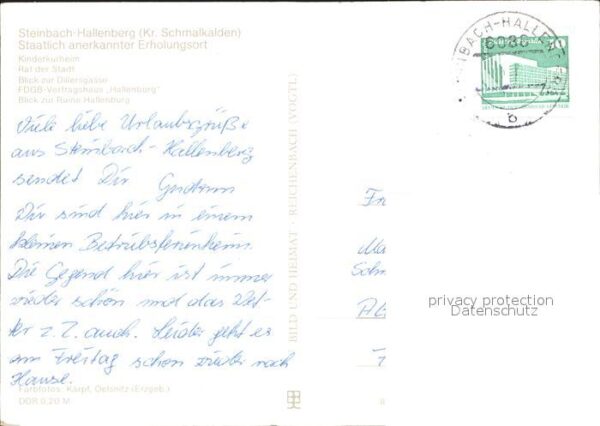 Steinbach-Hallenberg (Kr. Schmalkalden)
Staatlich anerkannter Erholungsort
Kinderkurheim
Rat der Stadt
Blick zur Dillersgasse
FDGB-Vertragshaus „Hallenburg"
Blick zur Ruine Hallenburg
Viele liebe Urlaubsgrüße
aus Steinbach-Hallenberg
sendet Dir Gudrun
Wir sind hier in einem
kleinen Betriebsferienheim.
Die Gegend hier ist immer
wieder schön und das Wet-
ter z. Z. auch. Leider geht es
am Freitag schon wieder nach
Hause.
Farbfotos: Karpf, Oelsnitz (Erzgeb.)
DDR 0,20 M
BILD UND HEIMAT · REICHENBACH (VOGTL)
6086
b
Fr
Schm
privacy protection
Datenschutz